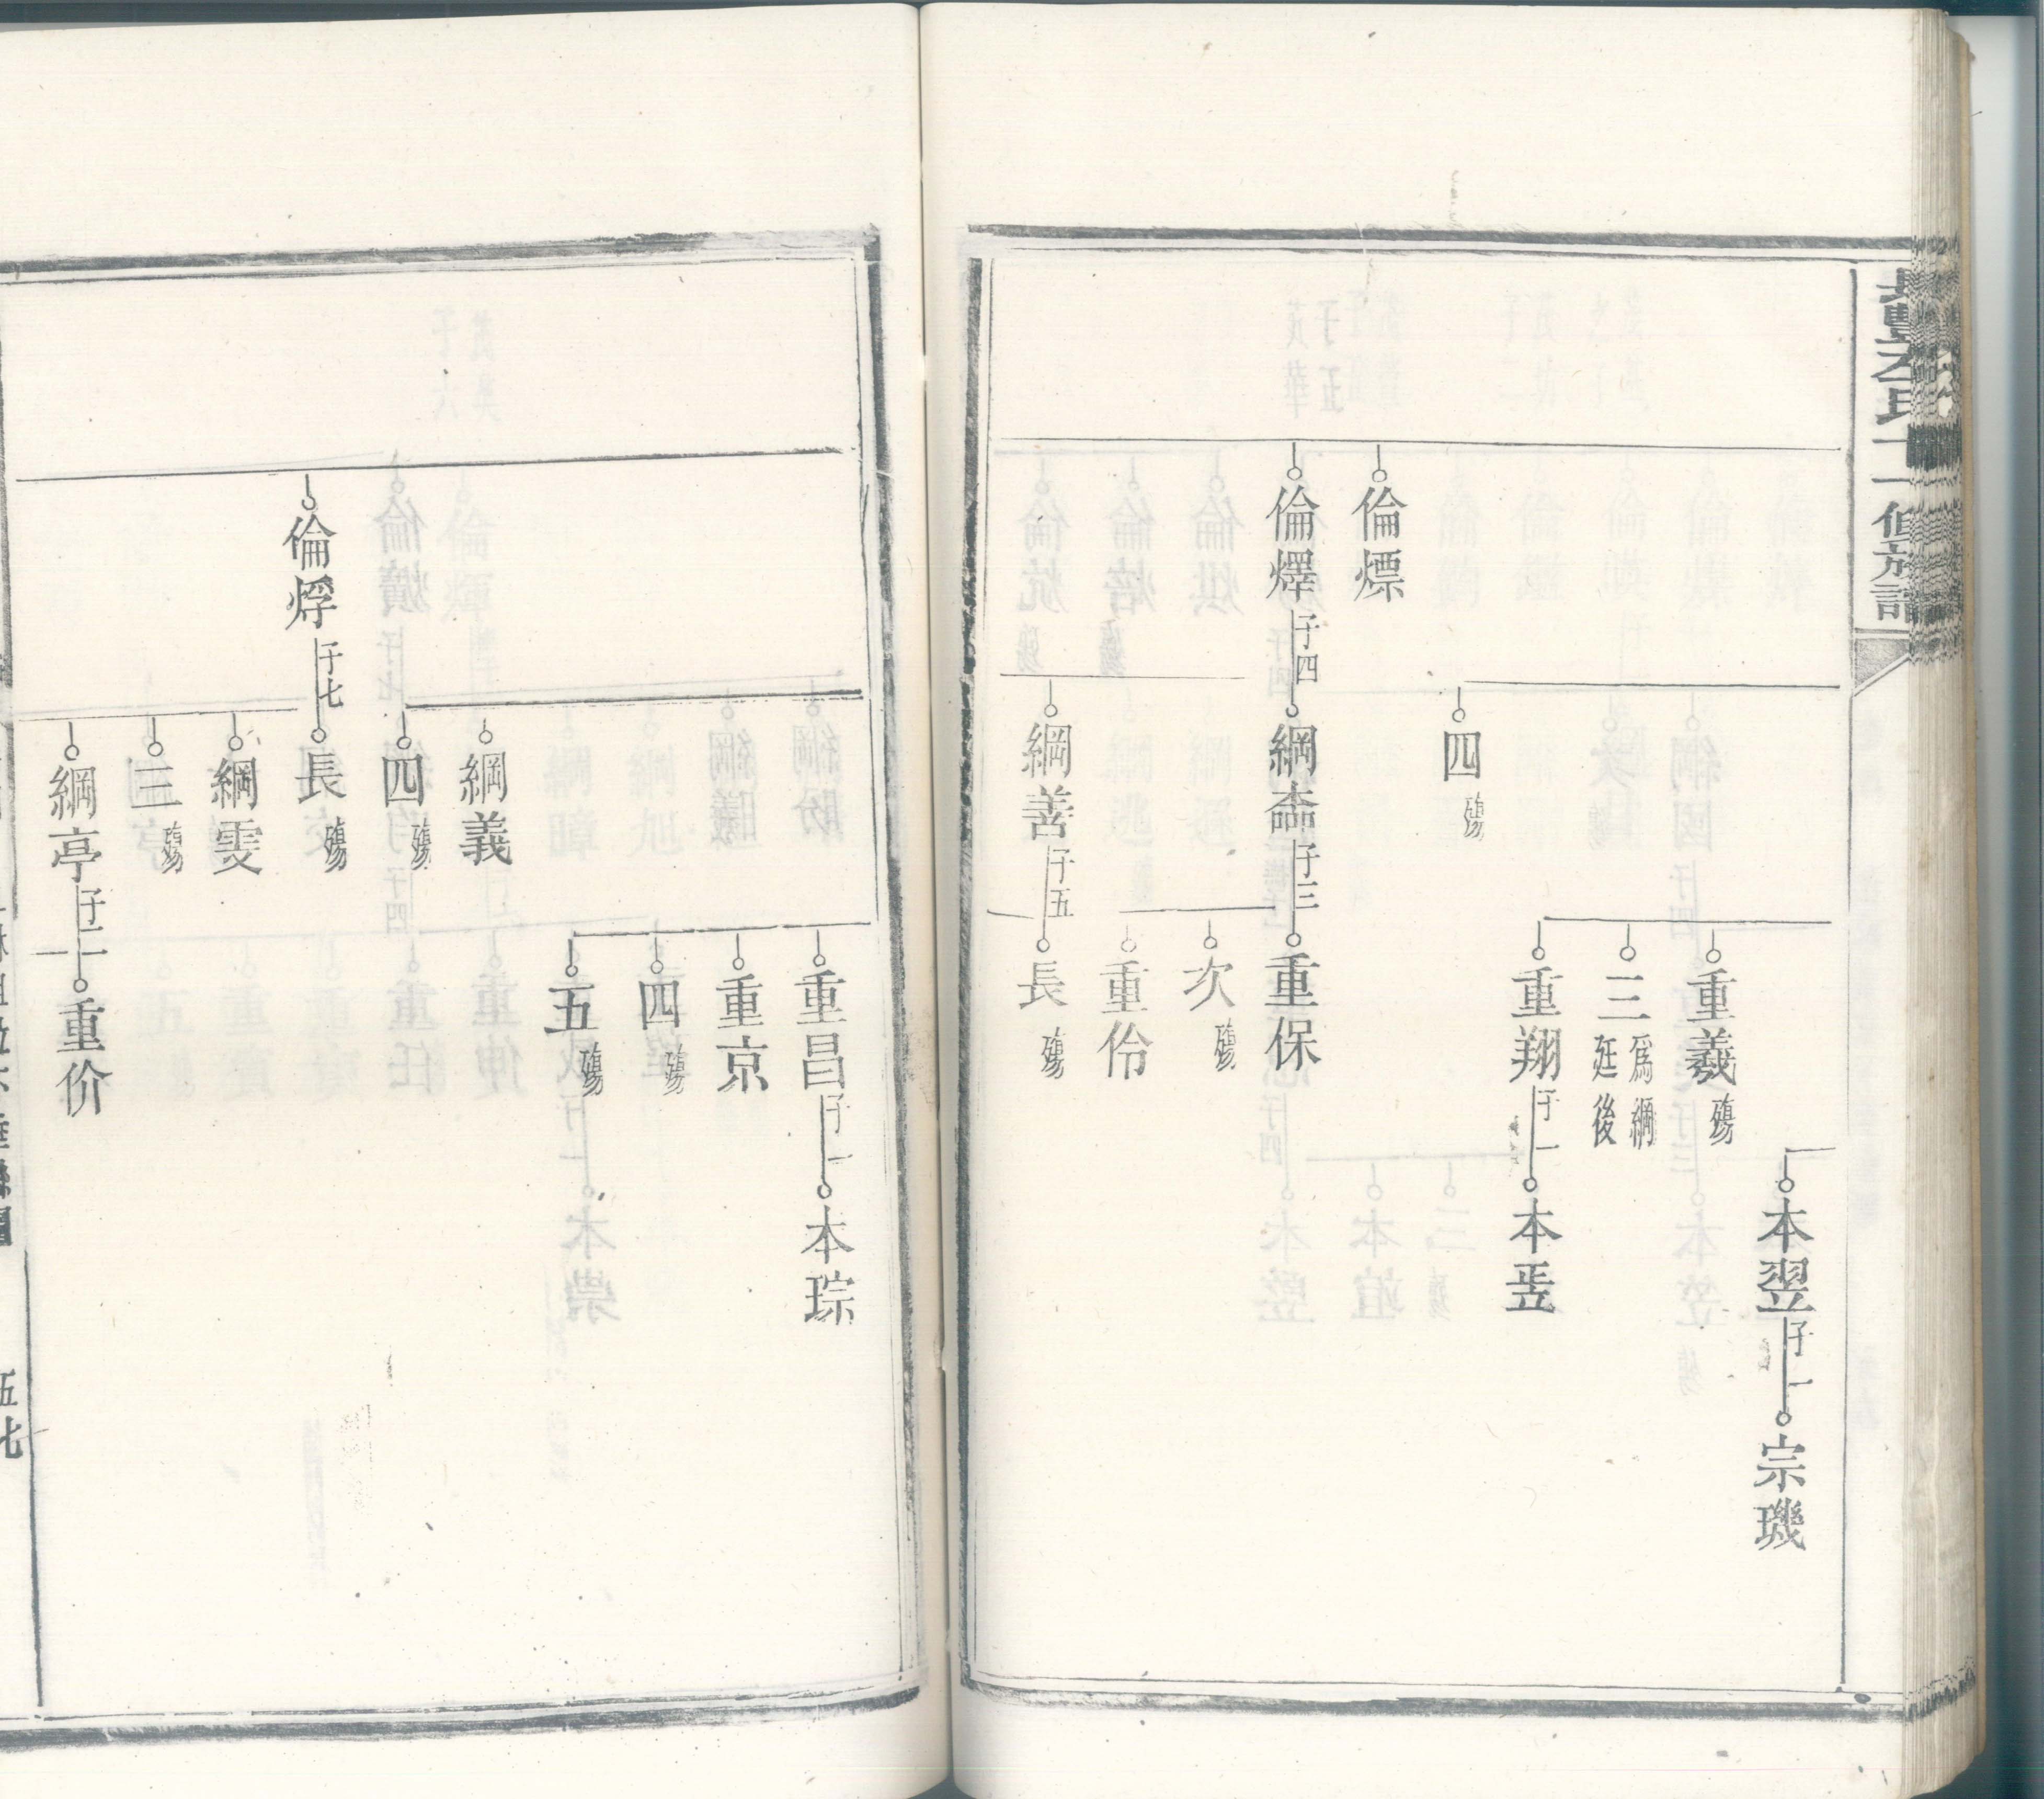 本翌 子一 宗璣
重羲 殤
三 爲綱廷後
重翔 子一 本珽
四 殤
倫熛
倫燡 子四 綱𡘾 子三 重保
次 殤
重伶
綱善 子五 長 殤
重昌 子一 本琮
重京
四 殤
五 殤
綱義
四 殤
倫烰 子七 長 殤
綱雯
三 殤
綱亭 子二 重价